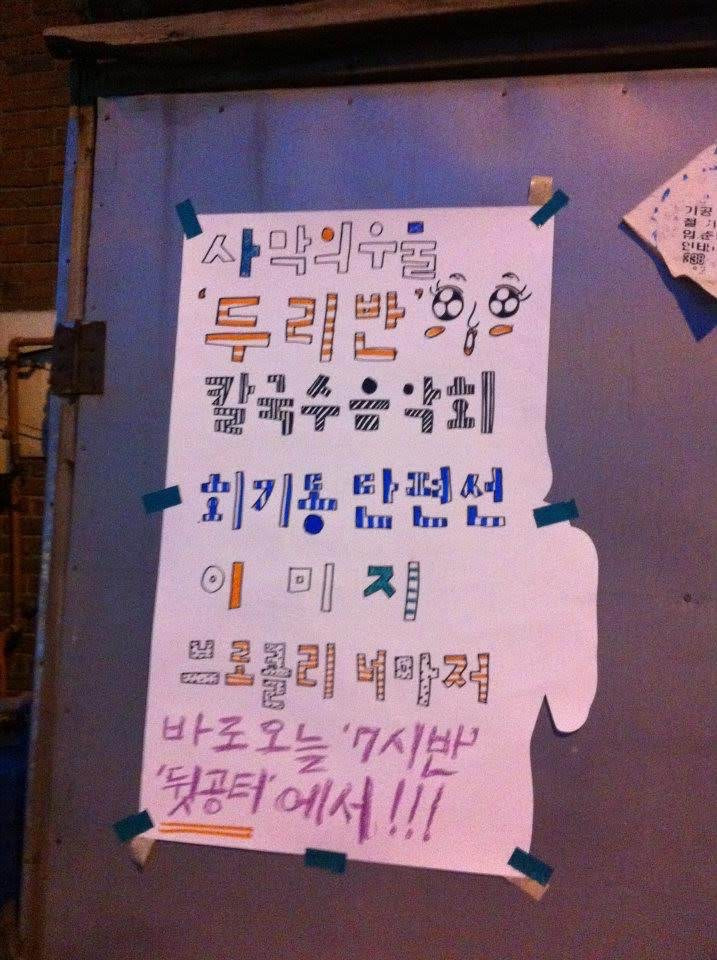 사막의우물
'두리반'
칼국수음악회
회기동 단편선
이 미 지
브로콜리 너마저
바로오늘 '7시반'
'뒷공터'에서!!!